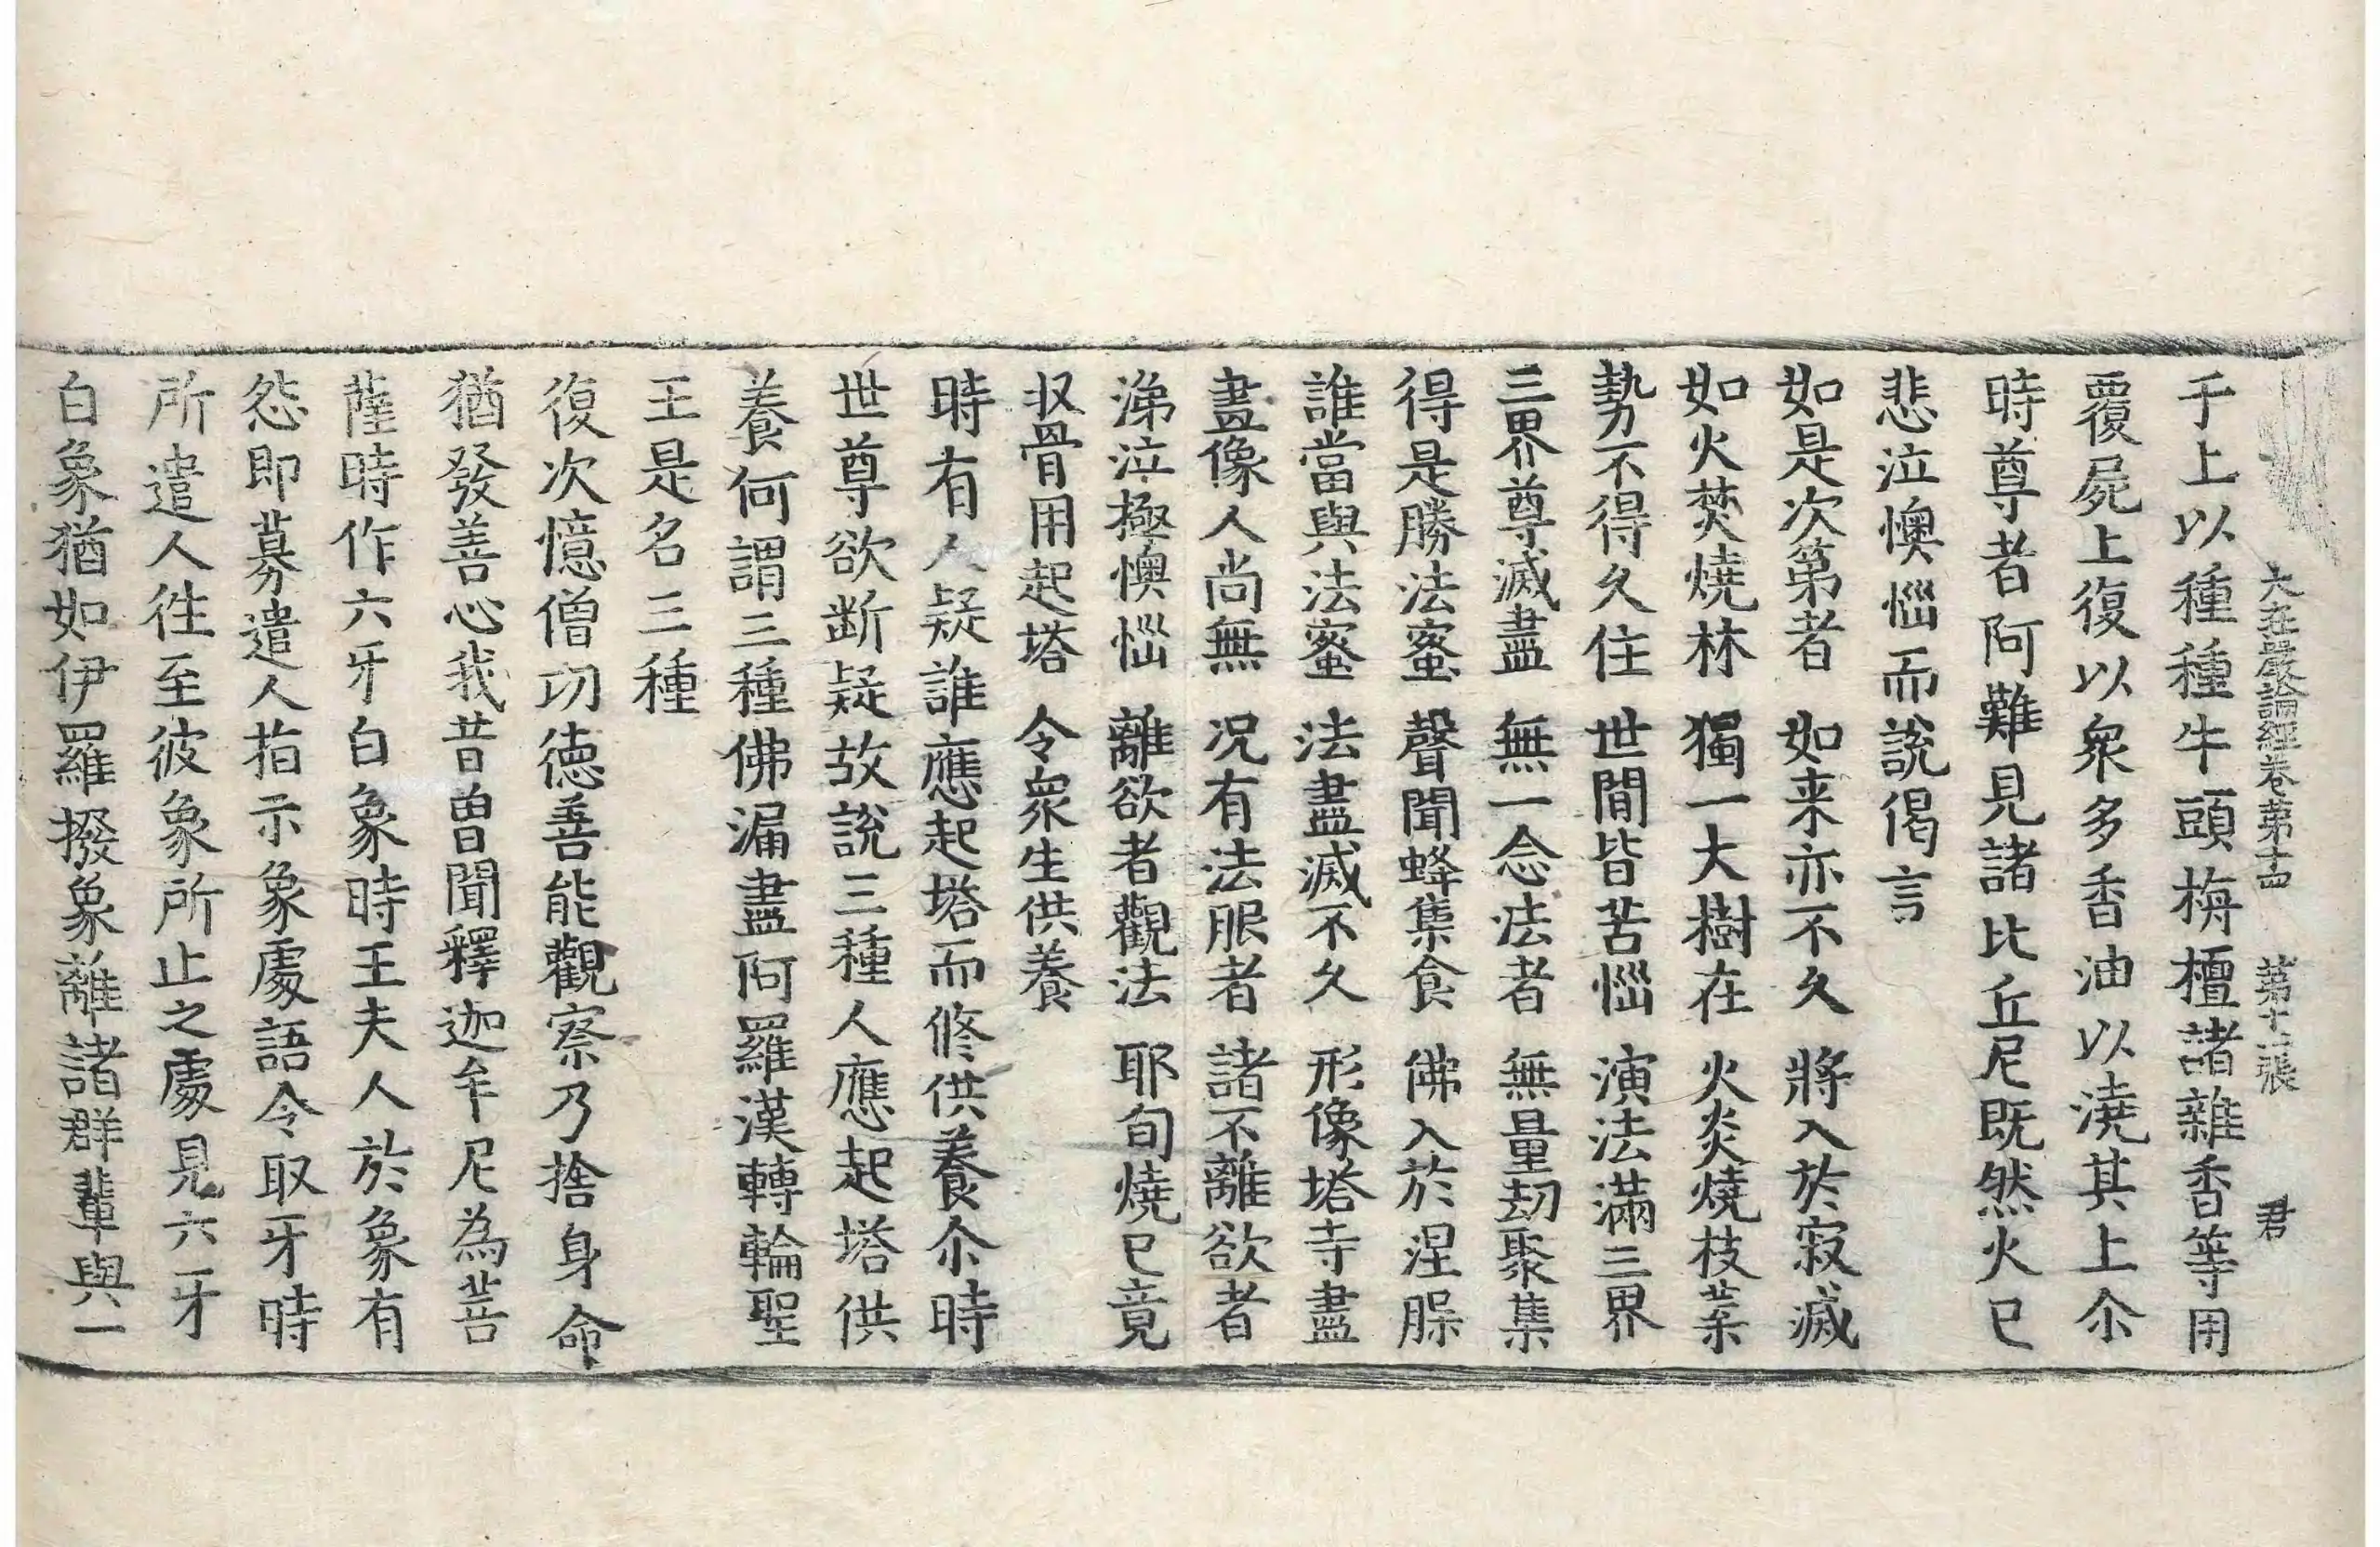 大莊嚴論經卷第十四 第十一張 君
于上以種種牛頭栴檀諸雜香等用
覆屍上復以衆多香油以澆其上尒
時尊者阿難見諸比丘尼既然火已
悲泣懊惱而說偈言
如是次第者 如来亦不久 將入於寂滅
如火焚燒林 獨一大樹在 火炎燒枝葉
勢不得久住 世閒皆苦惱 演法滿三界
三界尊滅盡 無一念法者 無量劫聚集
得是勝法蜜 聲聞蜂集食 佛入於涅槃
誰當與法蜜 法盡滅不久 形像塔寺盡
盡像人尚無 况有法服者 諸不離欲者
涕泣極懊惱 離欲者觀法 耶旬燒已竟
収骨用起塔 令衆生供養
時有人疑誰應起塔而修供養尒時
世尊欲断疑故說三種人應起塔供
養何謂三種佛漏盡阿羅漢轉輪聖
王是名三種
復次憶僧功德善能觀察乃捨身命
猶發善心我昔曾聞釋迦牟尼為菩
薩時作六牙白象時王夫人於象有
怨即募遣人指示象處語令取牙時
所遣人往至彼象所止之處見六牙
白象猶如伊羅撥象離諸群輩與一